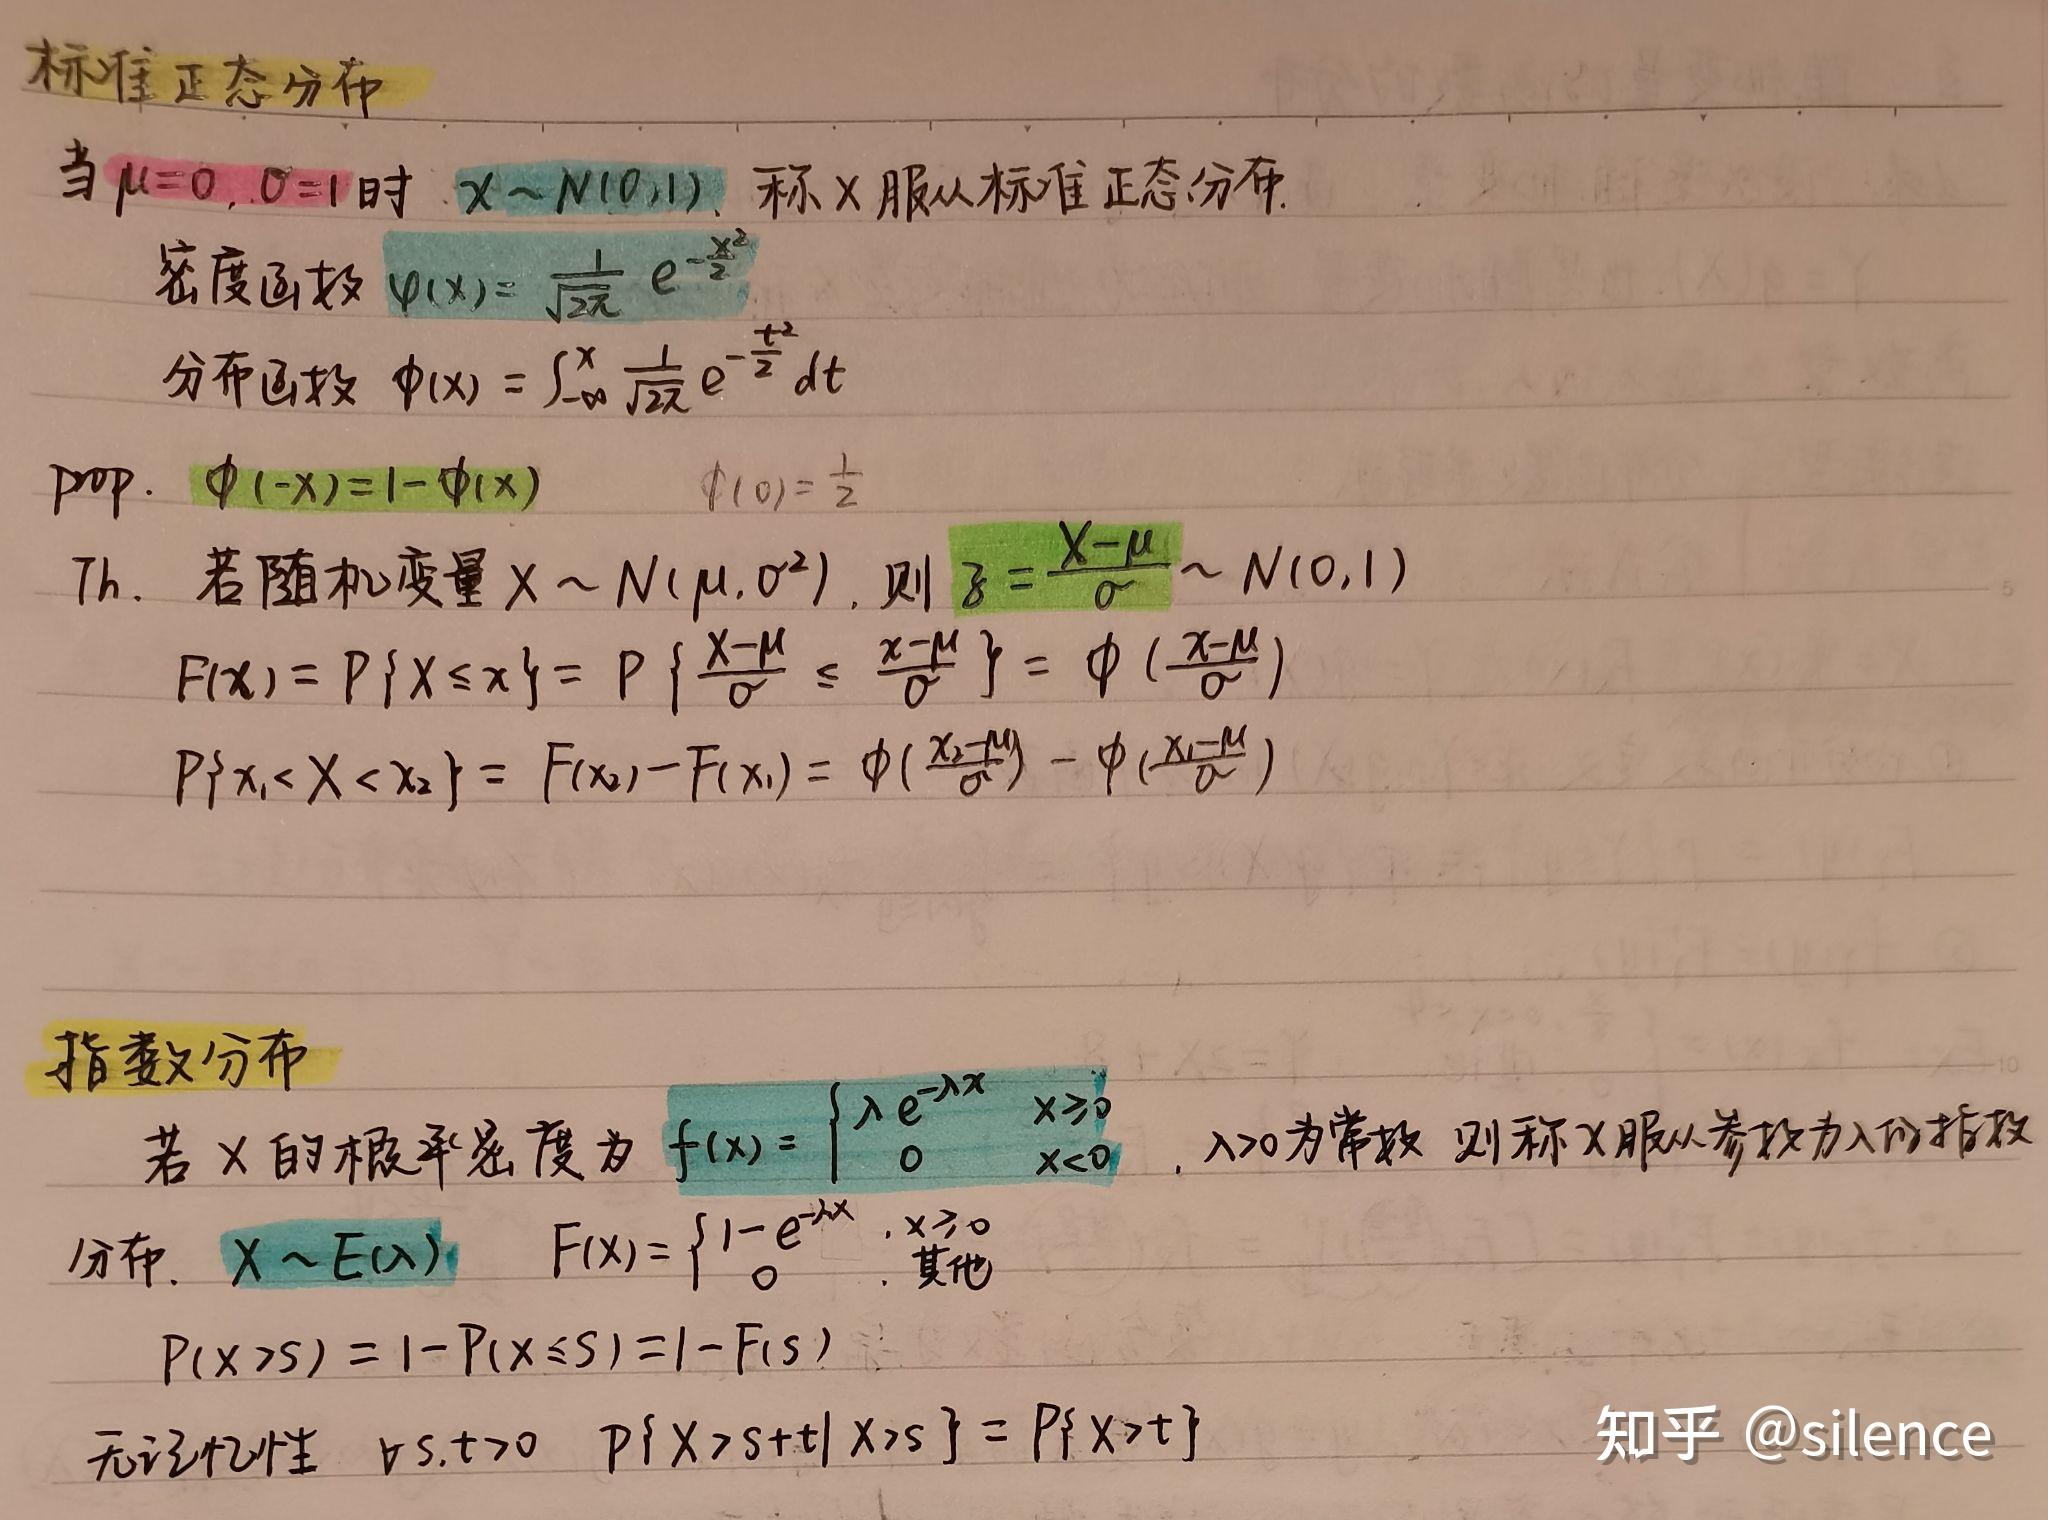 标准正态分布
当 μ=0, σ=1时 X~N(0,1), 称X服从标准正态分布.
密度函数 φ(x)= \frac{1}{\sqrt{2π}} e^{-\frac{x^2}{2}}
分布函数 Φ(x) = ∫_{-∞}^{x} \frac{1}{\sqrt{2π}} e^{-\frac{t^2}{2}} dt
prop. Φ(-x)=1-Φ(x) Φ(0)=\frac{1}{2}
Th. 若随机变量 X ~ N(μ,σ²), 则 ξ = \frac{X-μ}{σ} ~ N(0,1)
F(x) = P{X ≤ x} = P{\frac{X-μ}{σ} ≤ \frac{x-μ}{σ}} = Φ(\frac{x-μ}{σ})
P{x₁< X < x₂} = F(x₂) - F(x₁) = Φ(\frac{x₂-μ}{σ}) - Φ(\frac{x₁-μ}{σ})
指数分布
若 X 的概率密度为 f(x) = { λe^{-λx} x≥0 ; 0 x<0 , λ>0为常数 则称X服从参数为λ的指数
分布. X ~ E(λ) F(x) = { 1-e^{-λx}, x≥0 ; 0, 其他
P(X>s) = 1-P(X≤s) = 1-F(s)
无记忆性 ∀ s,t>0 P{X>s+t| X>s} = P{X>t}
知乎 @silence